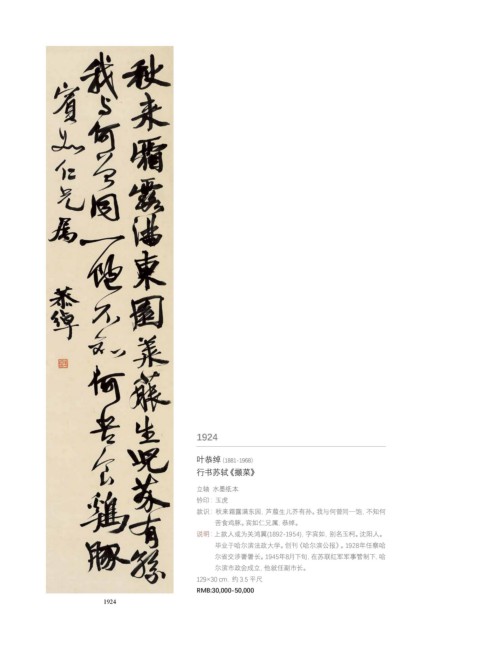 秋来霜露满東園羙菔生児芥有孫
我与何曽同一饱不知何苦食鷄豚
賓如仁兄属 恭绰
1924
1924
叶恭绰 (1881-1968)
行书苏轼《撷菜》
立轴 水墨纸本
钤印：玉虎
款识：秋来霜露满东园，芦菔生儿芥有孙。我与何曾同一饱，不知何
苦食鸡豚。宾如仁兄属，恭绰。
说明：上款人或为关鸿翼(1892-1954)，字宾如，别名玉柯。沈阳人。
毕业于哈尔滨法政大学。创刊《哈尔滨公报》。1928年任察哈
尔省交涉署署长。1945年8月下旬，在苏联红军军事管制下，哈
尔滨市政会成立，他就任副市长。
128×30 cm 约 3.5 平尺
RMB:30,000-50,000